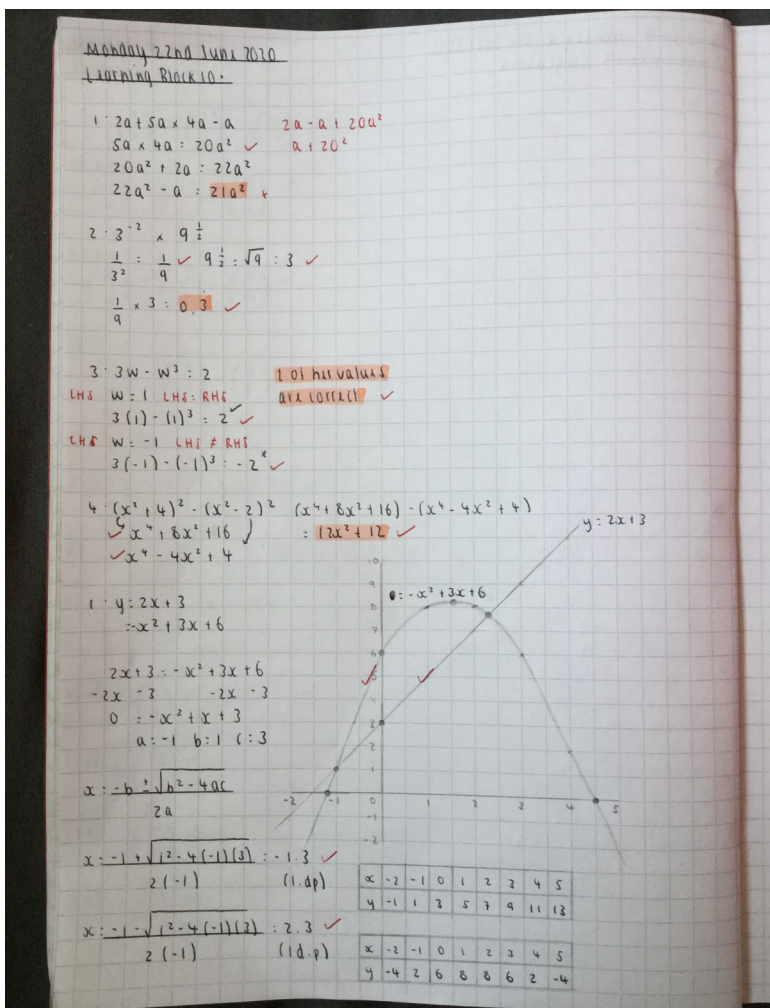 Monday 22nd June 2020
Learning Block 10.
1. 2a + 5a × 4a - a    2a - a + 20a²
5a × 4a = 20a² ✓    a + 20²
20a² + 2a = 22a²
22a² - a = 21a² ×
2. 3⁻² × 9^½
1/3² = 1/9 ✓ 9^½ = √9 = 3 ✓
1/9 × 3 = 0.3̇ ✓
3. 3w - w³ = 2    1 of her values
LHS w = 1 LHS = RHS    are correct ✓
3(1) - (1)³ = 2 ✓ ✓
LHS w = -1 LHS ≠ RHS
3(-1) - (-1)³ = -2 × ✓
4. (x² + 4)² - (x² - 2)²    (x⁴ + 8x² + 16) - (x⁴ - 4x² + 4)
✓ x⁴ + 8x² + 16    = 12x² + 12 ✓
✓ x⁴ - 4x² + 4
y = 2x + 3
= -x² + 3x + 6
1. y = 2x + 3
= -x² + 3x + 6
2x + 3 = -x² + 3x + 6
-2x -3    -2x -3
0 = -x² + x + 3
a = -1 b = 1 c = 3
x = (-b ± √(b² - 4ac))/2a
x = (-1 + √(1² - 4(-1)(3)))/2(-1) = -1.3 ✓
(1.dp)
x = (-1 - √(1² - 4(-1)(3)))/2(-1) = 2.3 ✓
(1d.p)
10
9
8
7
6
5
3
2
1
-2 -1 0 1 2 3 4 5
-1
-2
x -2 -1 0 1 2 3 4 5
y -1 1 3 5 7 9 11 13
x -2 -1 0 1 2 3 4 5
y -4 2 6 8 8 6 2 -4